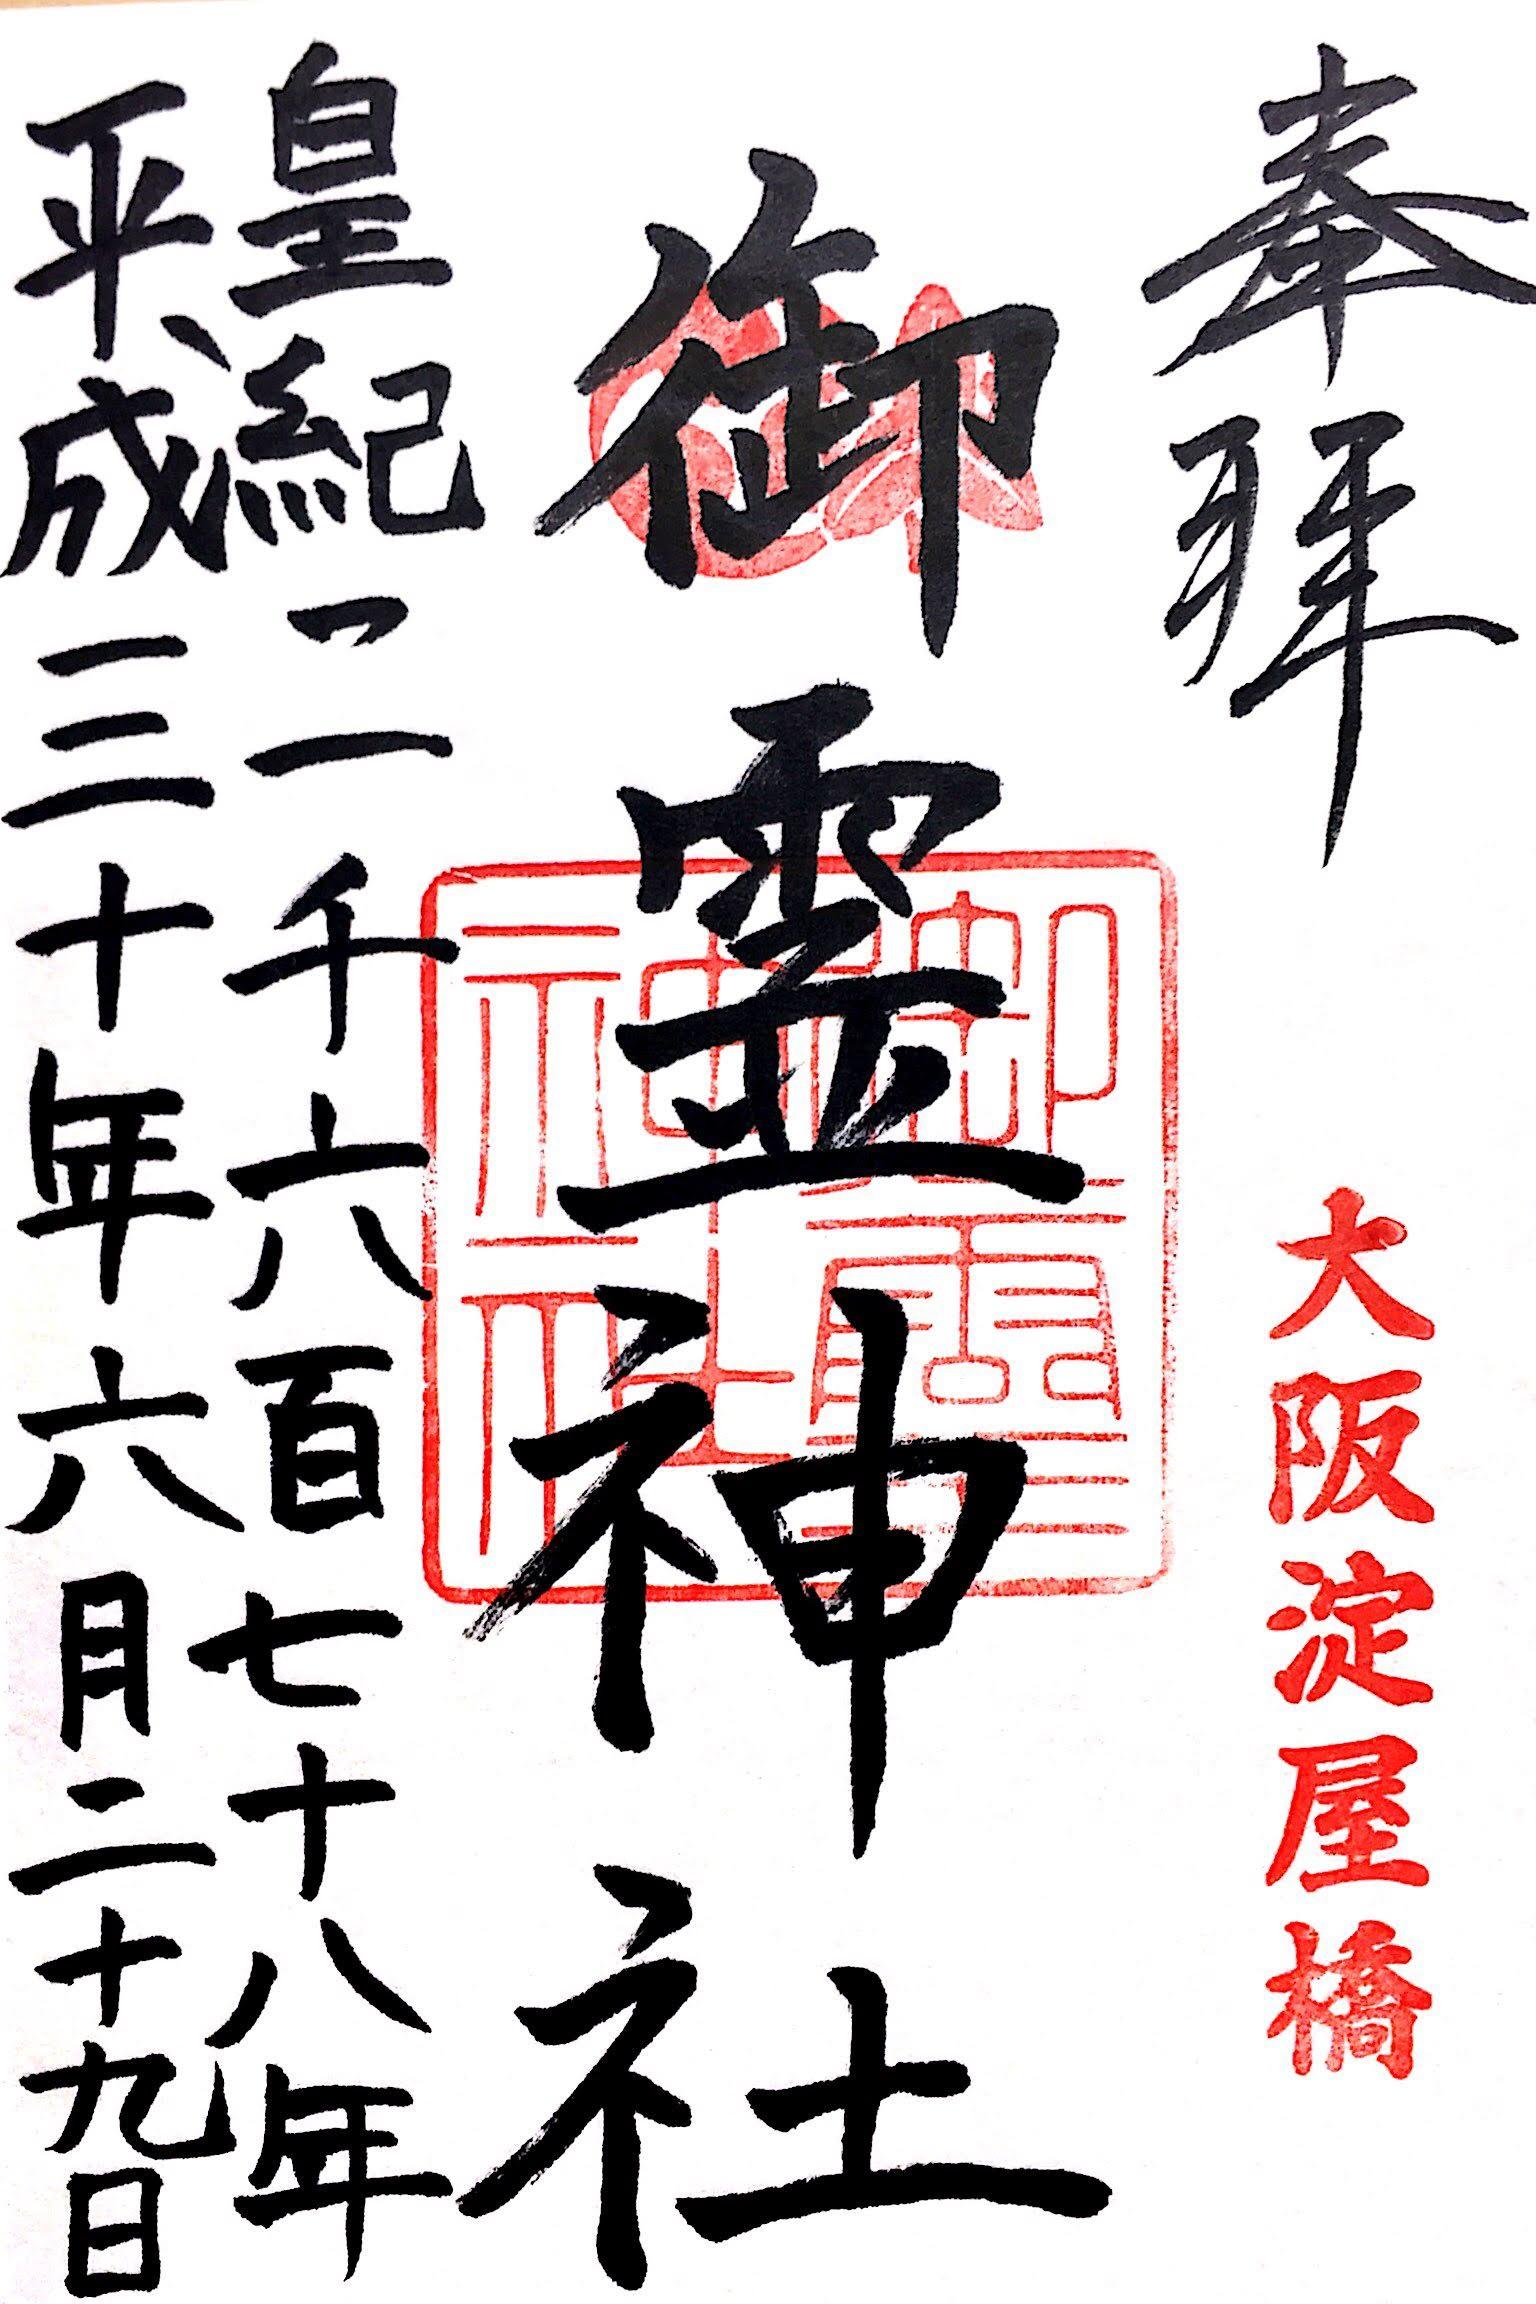 奉拝
大阪淀屋橋
御霊神社
御靈神社
皇紀二千六百七十八年
平成三十年六月二十九日